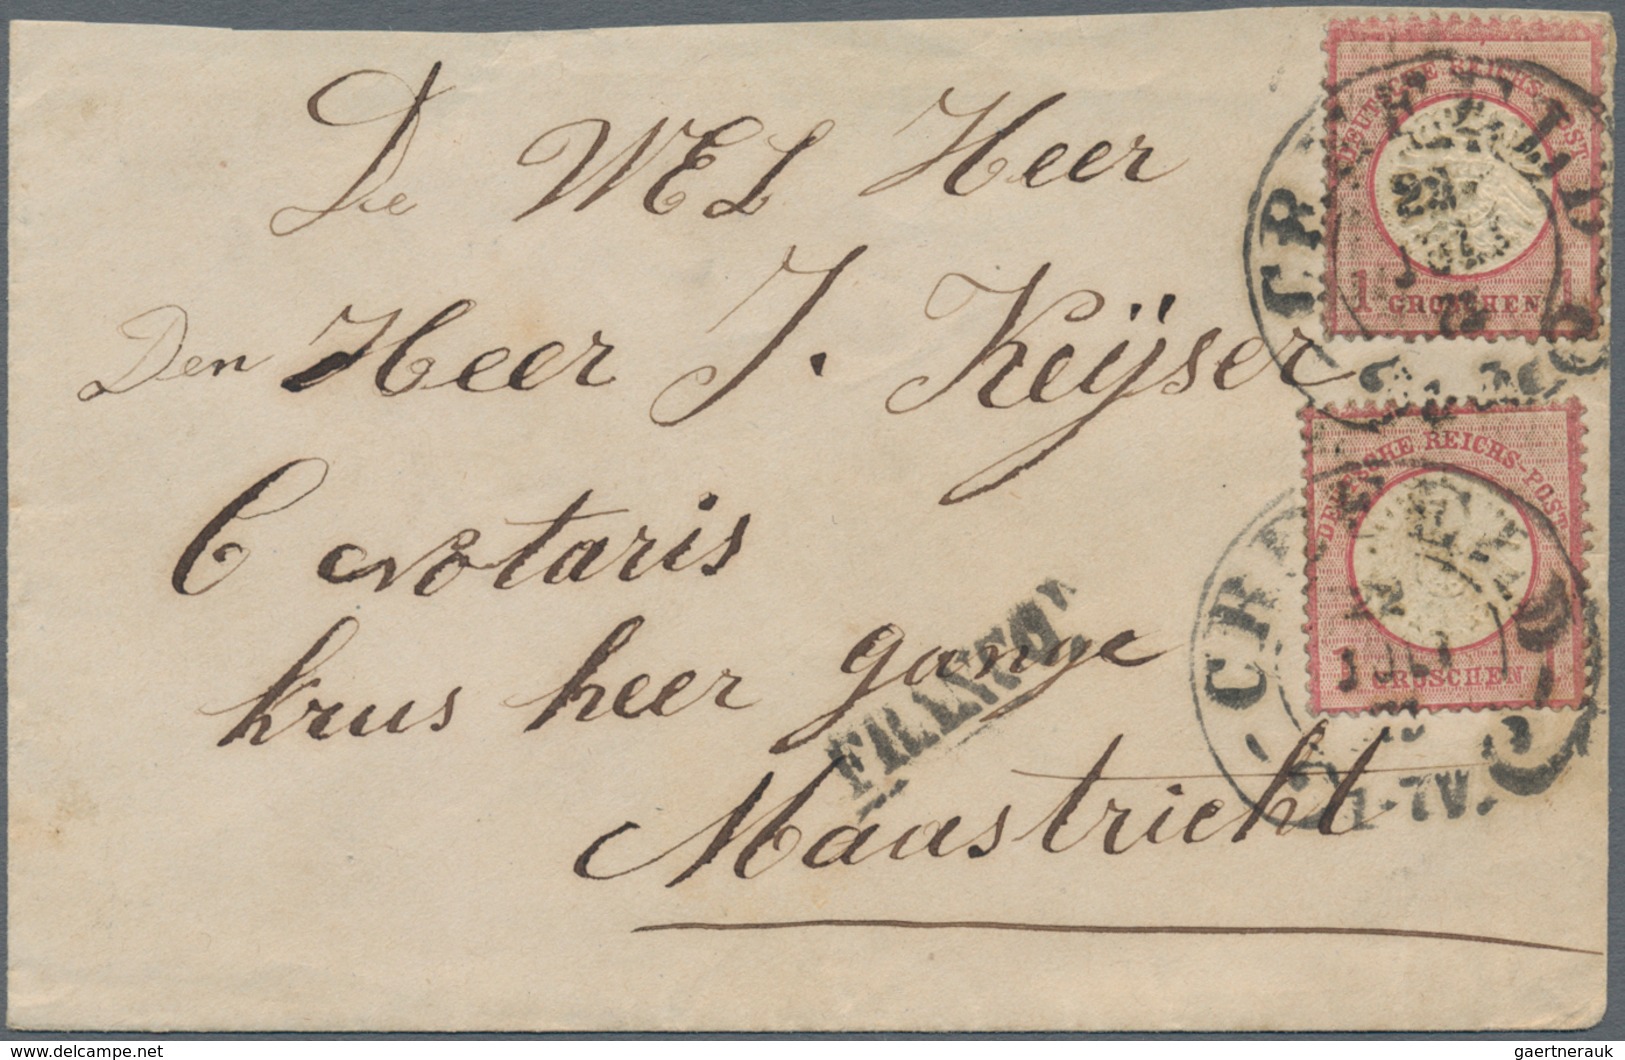 De WEL Heer
Den Heer J. Keÿser
Notaris
krus heer gange
Maastricht
FRANCO.
DEUTSCHE REICHS-POST
1 GROSCHEN 1
DEUTSCHE REICHS-POST
1 GROSCHEN 1
CREFELD
23
JULI
CREFELD
JULI
1-7V.
© www.delcampe.net
gaertnerauk